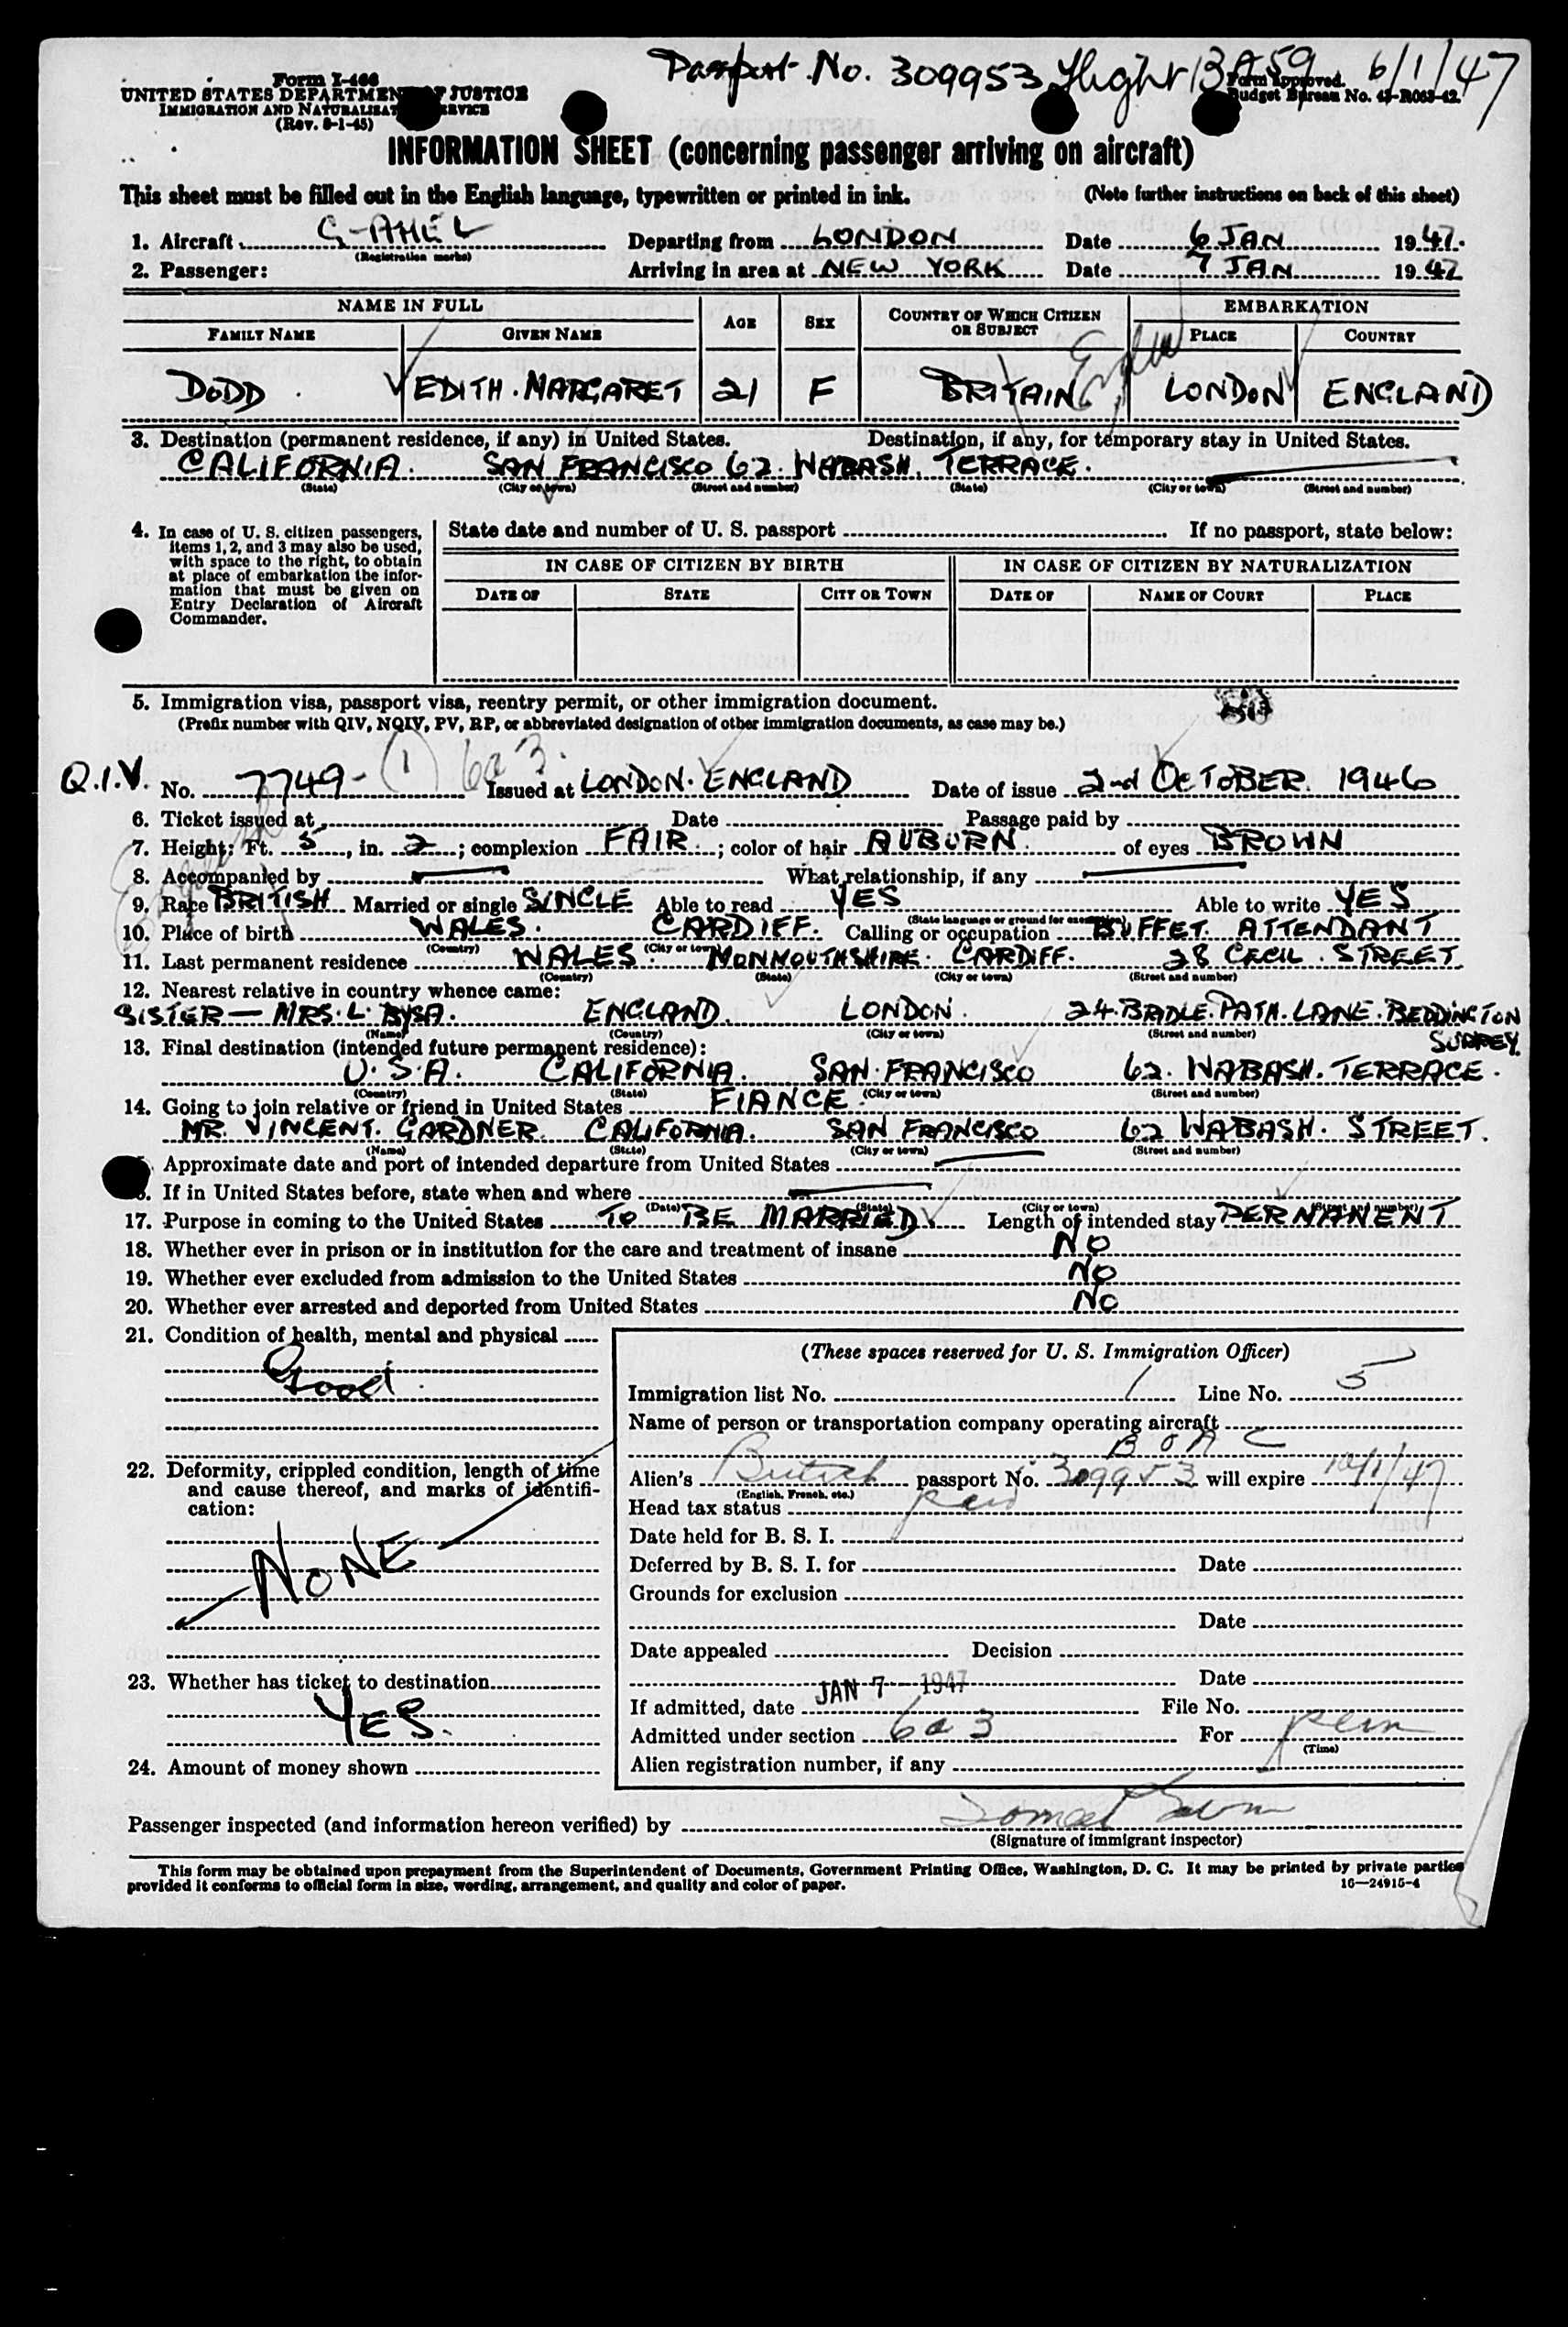 Passport No. 309953 Flight BA59 6/1/47
Form I-466
UNITED STATES DEPARTMENT OF JUSTICE
IMMIGRATION AND NATURALIZATION SERVICE
(Rev. 8-1-45)
Form Approved.
Budget Bureau No. 43-R063-42.
INFORMATION SHEET (concerning passenger arriving on aircraft)
This sheet must be filled out in the English language, typewritten or printed in ink. (Note further instructions on back of this sheet)
1. Aircraft G-AHEL Departing from LONDON Date 6 JAN 1947.
(Registration marks)
2. Passenger: Arriving in area at NEW YORK Date 7 JAN 1947
NAME IN FULL AGE SEX COUNTRY OF WHICH CITIZEN OR SUBJECT EMBARKATION
FAMILY NAME GIVEN NAME PLACE COUNTRY
DODD EDITH. MARGARET 21 F BRITAIN LONDON ENGLAND
3. Destination (permanent residence, if any) in United States. Destination, if any, for temporary stay in United States.
CALIFORNIA. SAN FRANCISCO 62. WABASH. TERRACE.
(State) (City or town) (Street and number) (State) (City or town) (Street and number)
4. In case of U. S. citizen passengers, items 1, 2, and 3 may also be used, with space to the right, to obtain at place of embarkation the information that must be given on Entry Declaration of Aircraft Commander.
State date and number of U. S. passport If no passport, state below:
IN CASE OF CITIZEN BY BIRTH IN CASE OF CITIZEN BY NATURALIZATION
DATE OF STATE CITY OR TOWN DATE OF NAME OF COURT PLACE
5. Immigration visa, passport visa, reentry permit, or other immigration document.
(Prefix number with QIV, NQIV, PV, RP, or abbreviated designation of other immigration documents, as case may be.)
(1) 6a3.
Q.I.V. No. 7749- Issued at LONDON. ENGLAND Date of issue 2nd OCTOBER. 1946
6. Ticket issued at Date Passage paid by
7. Height: Ft. 5, in. 2; complexion FAIR; color of hair AUBURN. of eyes BROWN
8. Accompanied by What relationship, if any
9. Race BRITISH Married or single SINGLE Able to read YES Able to write YES
(State language or ground for exemption)
10. Place of birth WALES. CARDIFF. Calling or occupation BUFFET. ATTENDANT
(Country) (City or town)
11. Last permanent residence WALES. MONMOUTHSHIRE. CARDIFF. 28 CECIL. STREET
(Country) (State) (City or town) (Street and number)
12. Nearest relative in country whence came:
SISTER — MRS. L. BYSA. ENGLAND. LONDON. 24. BRIDLE. PATH. LANE. BEDDINGTON
SURREY.
(Name) (Country) (City or town) (Street and number)
13. Final destination (intended future permanent residence):
U.S.A. CALIFORNIA. SAN. FRANCISCO 62. WABASH. TERRACE.
(Country) (State) (City or town) (Street and number)
14. Going to join relative or friend in United States FIANCE.
MR. VINCENT. GARDNER. CALIFORNIA. SAN FRANCISCO 62 WABASH. STREET.
(Name) (State) (City or town) (Street and number)
Approximate date and port of intended departure from United States
If in United States before, state when and where
(Date) (State) (City or town) (Street and number)
17. Purpose in coming to the United States TO BE MARRIED Length of intended stay PERMANENT
18. Whether ever in prison or in institution for the care and treatment of insane NO
19. Whether ever excluded from admission to the United States NO
20. Whether ever arrested and deported from United States NO
21. Condition of health, mental and physical
Good.
22. Deformity, crippled condition, length of time and cause thereof, and marks of identification:
NONE
23. Whether has ticket to destination
YES.
24. Amount of money shown
(These spaces reserved for U. S. Immigration Officer)
Immigration list No. 1 Line No. 5
Name of person or transportation company operating aircraft
B O A C
Alien's British passport No. 309953 will expire 10/1/47
(English, French, etc.)
Head tax status paid
Date held for B. S. I.
Deferred by B. S. I. for Date
Grounds for exclusion
Date
Date appealed Decision
Date
If admitted, date JAN 7 - 1947 File No.
Admitted under section 6a3 For perm
(Time)
Alien registration number, if any
Passenger inspected (and information hereon verified) by
(Signature of immigrant inspector)
This form may be obtained upon prepayment from the Superintendent of Documents, Government Printing Office, Washington, D. C. It may be printed by private parties
provided it conforms to official form in size, wording, arrangement, and quality and color of paper. 16—24915-4